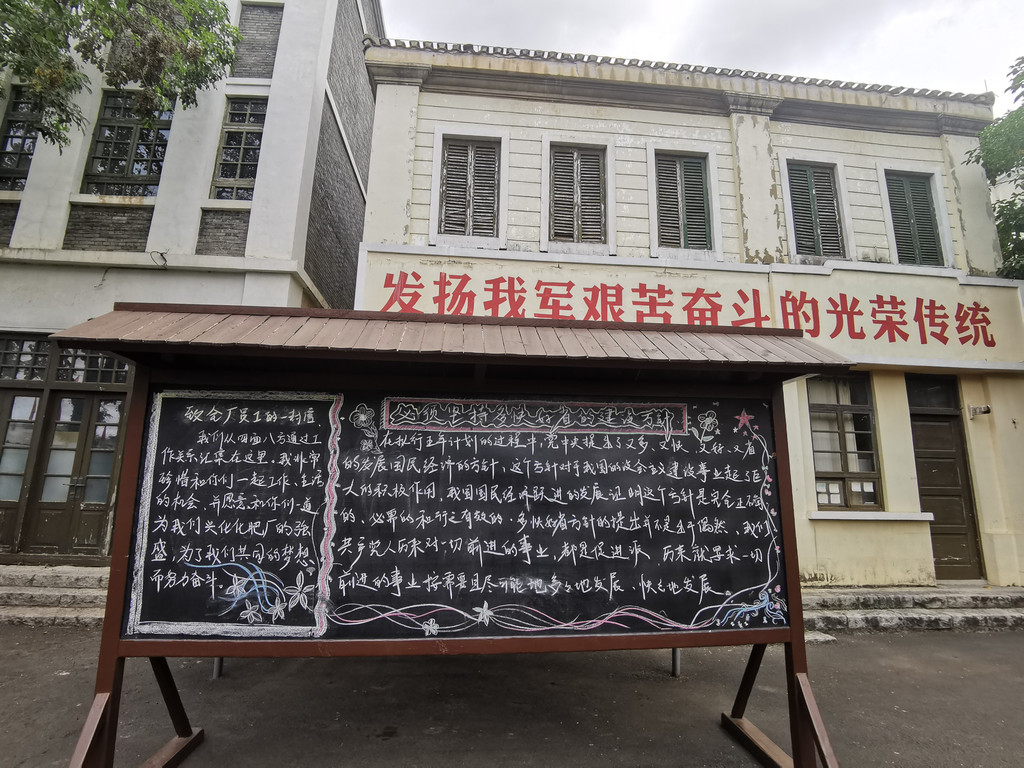 发扬我军艰苦奋斗的光荣传统
致全厂员工的一封信
我们从四面八方通过工
作关系汇集在这里,我非常
珍惜和你们一起工作、生活
的机会,并愿意和你们一道
为我们兴化化肥厂的强
盛,为了我们共同的梦想
而努力奋斗。
必须坚持多快好省的建设方针
在执行五年计划的过程中,党中央提出了又多、又快、又好、又省
的发展国民经济的方针,这个方针对于我国的社会主义建设事业起了巨
大的积极作用,我国国民经济跃进的发展证明这个方针是完全正确
的、必要的和行之有效的。多快好省方针的提出并不是出于偶然,我们
共产党人历来对一切前进的事业,都是促进派,历来就要求一切
前进的事业按需要且尽可能地多多地发展、快快地发展